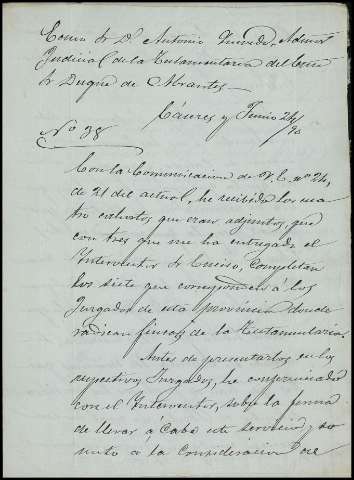 Excmo Sr. D. Antonio Quevedo, Admor
Judicial de la Testamentaria del Excmo
Sr Duque de Abrantes—
Cáceres y Junio 24/90
Nº 38
Con la Comunicacion de V. E. nº 24,
de 21 del actual, he recibido los cua
tro exhortos que eran adjuntos, que
con tres que me ha entregado el
Interventor Sr Enciso, completan
los siete que corresponden á los
Juzgados de esta provincia donde
radican fincas de la Testamentaria.
Antes de presentarlos en los
respectivos Juzgados, he conferenciado
con el Interventor, sobre la forma
de llevar á Cabo este servicio, y so
meto á la consideracion de